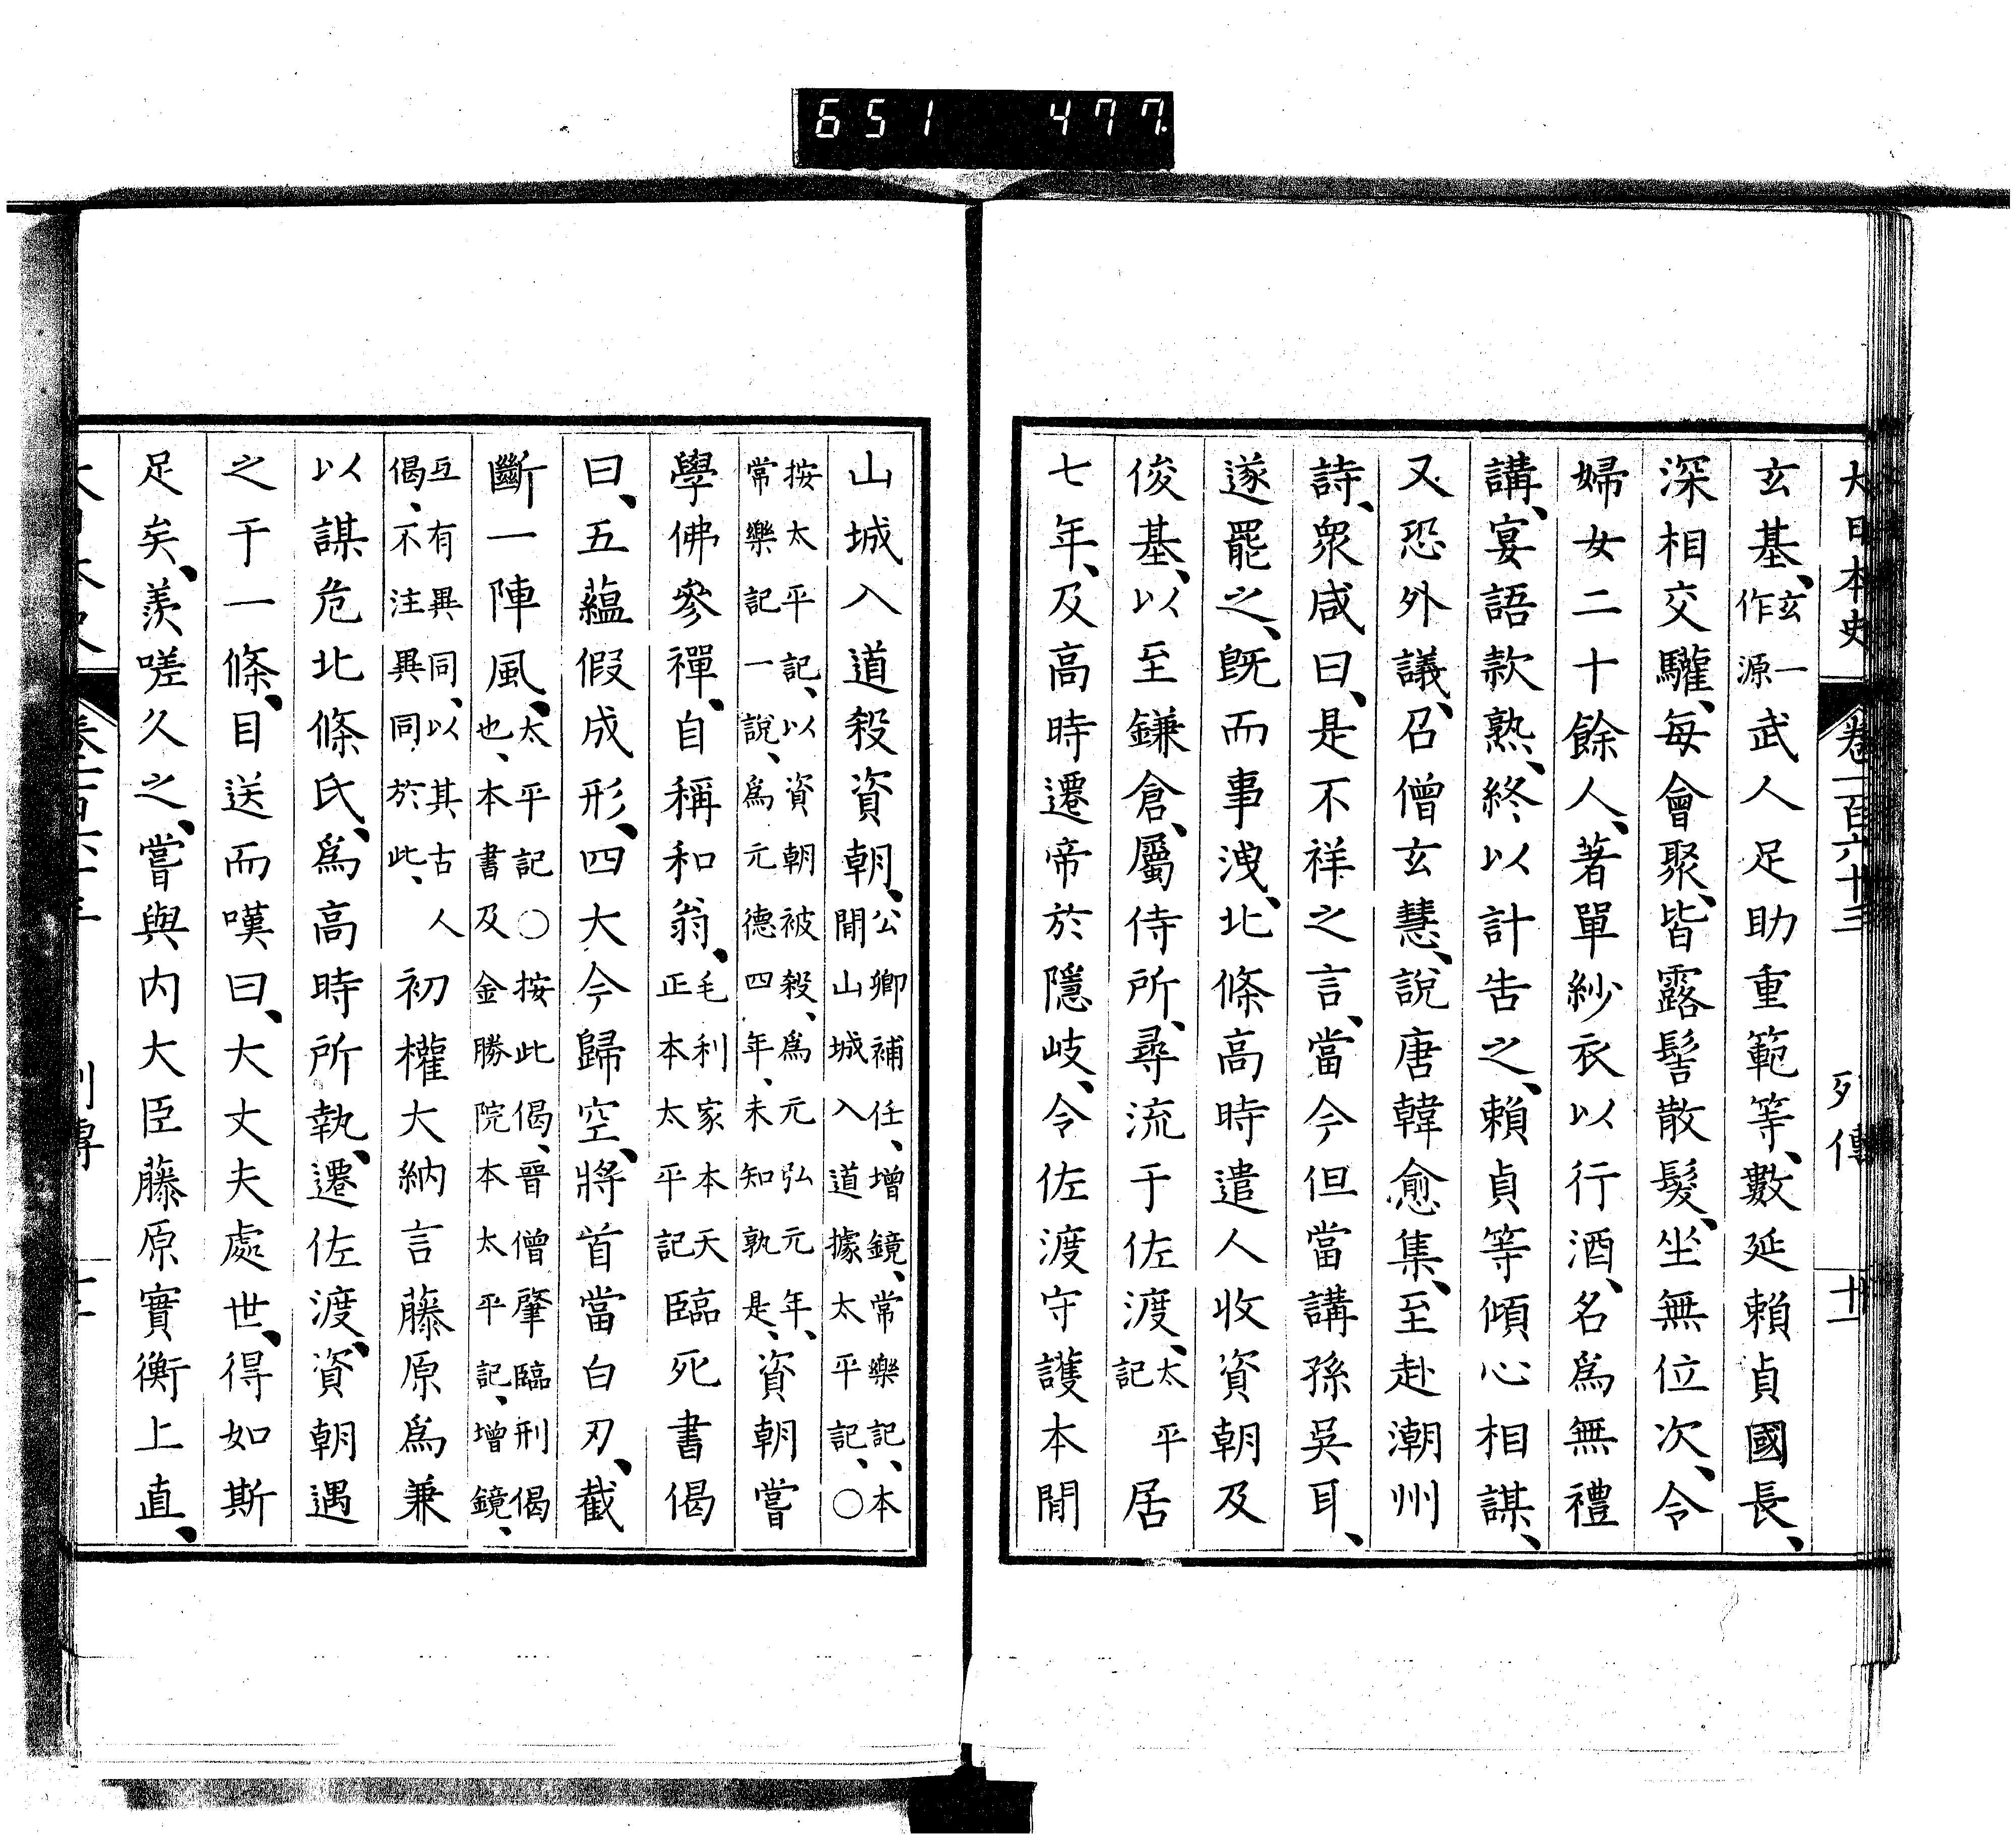 651 477
大日本史 卷一百六十三 列傳 十一
玄基、玄一作源武人足助重範等、數延賴貞國長、
深相交驩、每會聚、皆露髻散髮、坐無位次、令
婦女二十餘人、著單紗衣以行酒、名爲無禮
講、宴語款熟、終以計告之、賴貞等傾心相謀、
又恐外議、召僧玄慧、說唐韓愈集、至赴潮州
詩、衆咸曰、是不祥之言、當今但當講孫吳耳、
遂罷之、旣而事洩、北條高時遣人收資朝及
俊基、以至鎌倉、屬侍所、尋流于佐渡、太平記居
七年、及高時遷帝於隱岐、令佐渡守護本間
山城入道殺資朝、公卿補任、增鏡、常樂記、本間山城入道據太平記、○
按太平記、以資朝被殺、爲元弘元年、常樂記一說、爲元德四年、未知孰是、資朝嘗
學佛參禪、自稱和翁、毛利家本天正本太平記臨死書偈
曰、五蘊假成形、四大今歸空、將首當白刃、截
斷一陣風、太平記○按此偈、晉僧肇臨刑偈也、本書及金勝院本太平記、增鏡、
互有異同、以其古人偈、不注異同於此、初權大納言藤原爲兼
以謀危北條氏、爲高時所執、遷佐渡、資朝遇
之于一條、目送而嘆曰、大丈夫處世、得如斯
足矣、羨嗟久之、嘗與内大臣藤原實衡上直、